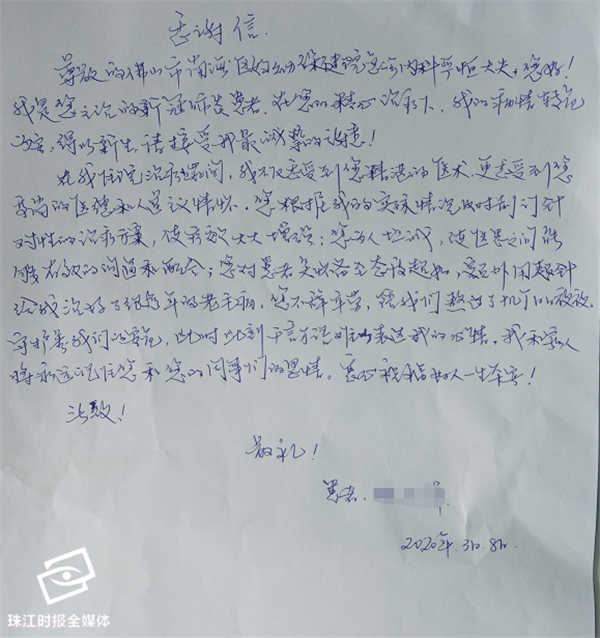 感谢信
尊敬的佛山市南海区妇幼保健院急诊内科罗恒大夫,您好!
我是您主治的新冠肺炎患者.在您的精心治疗下,我的病情转危
为安,得以新生.请接受我最诚挚的谢意!
在我住院治疗期间,我不仅感受到您精湛的医术.更感受到您
高尚的医德和人道主义情怀.您根据我的实际情况及时制订针
对性的治疗方案,使疗效大大增强;您为人坦诚,使医患之间能
够有效的沟通和配合;您对患者
给我治好了很多年的老毛病.您不辞辛劳,陪我们熬过了
守护着我们的安危,此时此刻千言万语难以表达我的心情.我和家人
将永远记住您和您的同事们的恩情.衷心祝福好人一生平安!
此致!
敬礼!
患者.
2020年.3月.8日.
珠江时报全媒体